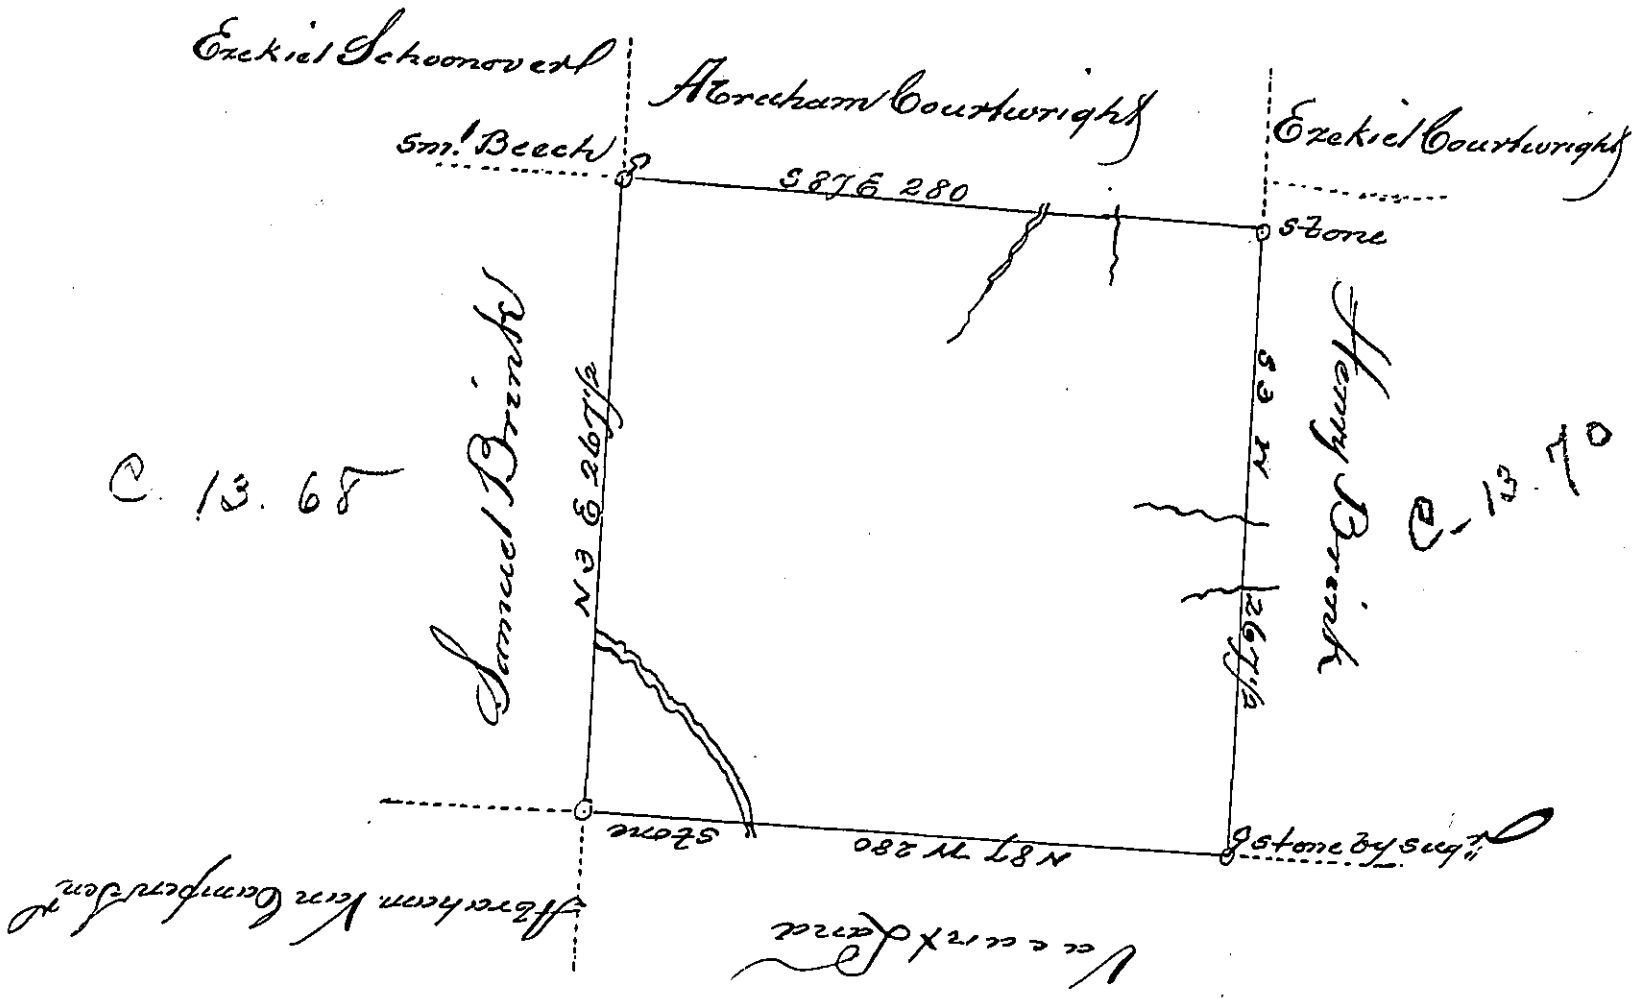 Ezekiel Schoonover
Abraham Courtwright
Ezekiel Courtwright
sm! Beech
S 87 E 280
stone
Samuel Brink
N 3 E 267½
S 3 W 267½
Henry Brink
C. 13. 68
C- 13. 70
stone
N 87 W 280
stone by sugr
Abraham Van Campen Senr
Vacant Land